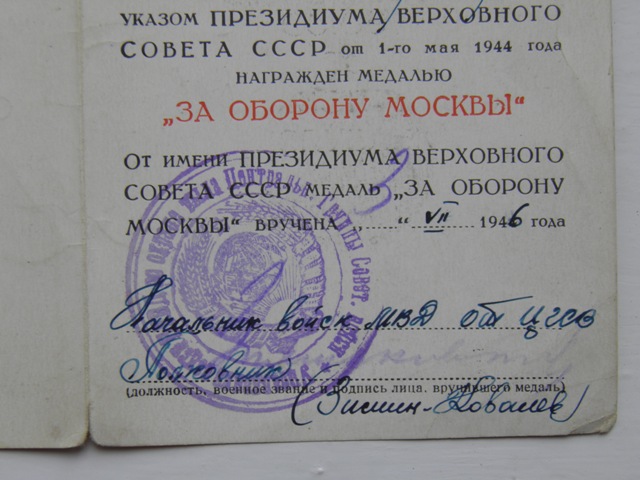 УКАЗОМ ПРЕЗИДИУМА ВЕРХОВНОГО
СОВЕТА СССР от 1-го мая 1944 года
НАГРАЖДЕН МЕДАЛЬЮ
„ЗА ОБОРОНУ МОСКВЫ“
От имени ПРЕЗИДИУМА ВЕРХОВНОГО
СОВЕТА СССР МЕДАЛЬ „ЗА ОБОРОНУ
МОСКВЫ“ ВРУЧЕНА „.....“ VII 1946 года
Начальник войск МВД от ЦГСВ
Полковник
(должность, военное звание и подпись лица, вручившего медаль)
(Зимин-Ковалев)